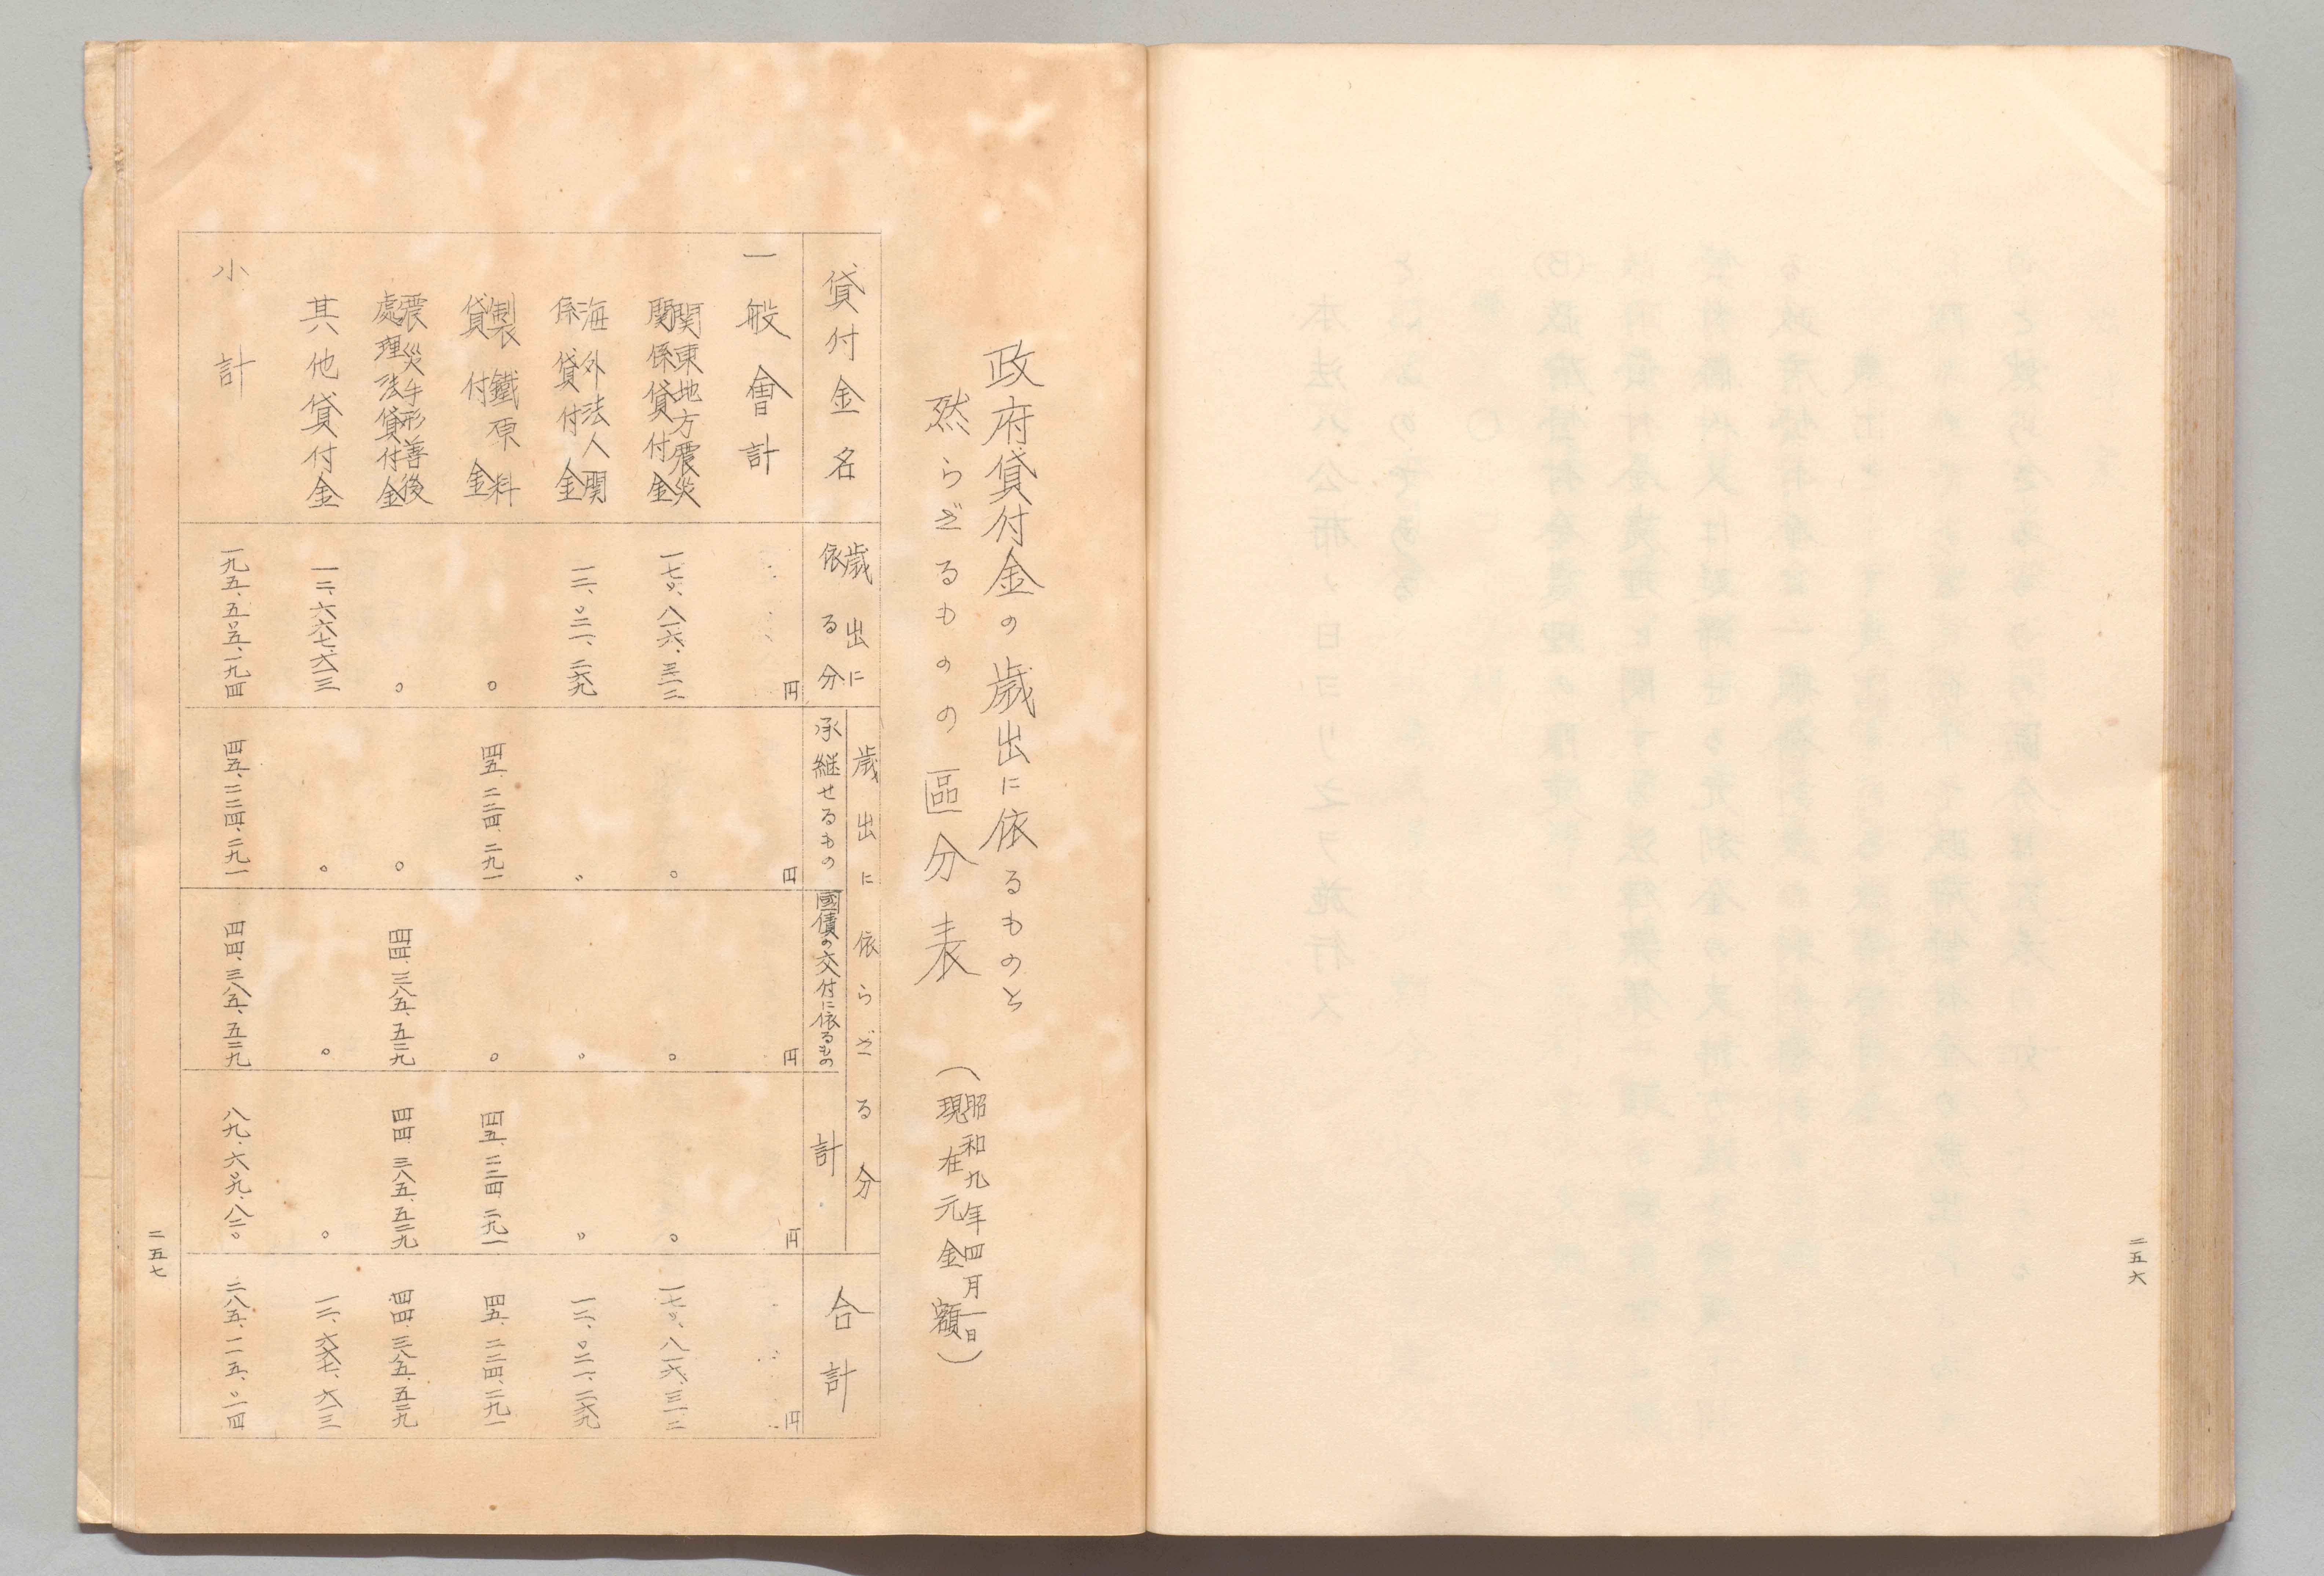 二五六
政府貸付金の歳出に依るものと
然らざるものの區分表
(昭和九年四月一日
現在元金額)
貸付金名
歳出に
依る分
歳出に依らざる分
承継せるもの
國債の交付に依るもの
計
合計
一般會計
円
円
円
円
円
関東地方震災
関係貸付金
一七〇、八一六、三一二
〇
〇
〇
一七〇、八一六、三一二
海外法人関
係貸付金
一二、〇二一、二六九
〃
〇
〇
一二、〇二一、二六九
製鐵原料
貸付金
〇
四五、二二四、二九一
〇
四五、二二四、二九一
四五、二二四、二九一
震災手形善後
處理法貸付金
〇
〇
四四、三八五、五二九
四四、三八五、五二九
四四、三八五、五二九
其他貸付金
一二、六六七、六一三
〇
〇
〇
一二、六六七、六一三
小計
一九五、五〇五、一九四
四五、二二四、二九一
四四、三八五、五二九
八九、六〇九、八二〇
二八五、一一五、〇一四
二五七